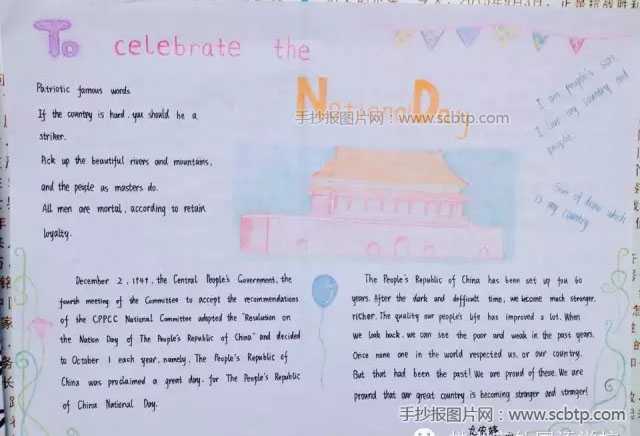 To celebrate the
National Day
手抄报图片网 www.scbtp.com
Patriotic famous words
If the country is hard, you should be a
striker.
Pick up the beautiful rivers and mountains,
and the people as masters do.
All men are mortal, according to retain
loyalty.
I am people's son,
I love my country and
people.
Son of
which
is my country
December 2, 1949, the Central People's Government, the
fourth meeting of the Committee to accept the recommendations
of the CPPCC National Committee adopted the "Resolution on
the Nation Day of The People's Republic of China" and decided
to October 1 each year, namely, The People's Republic of
China was proclaimed a great day, for The People's Republic
of China National Day.
The People's Republic of China has been set up fou 60
years. After the dark and difficult time, we become much stronger,
richer. The quality our people's life has improved a lot. When
we look back, we can see the poor and weak in the past years.
Once none one in the world respected us, or our country.
But that had been the past! We are proud of these. We are
pround that our great country is becoming stronger and stronger!
手抄报图片网 www.scbtp.com